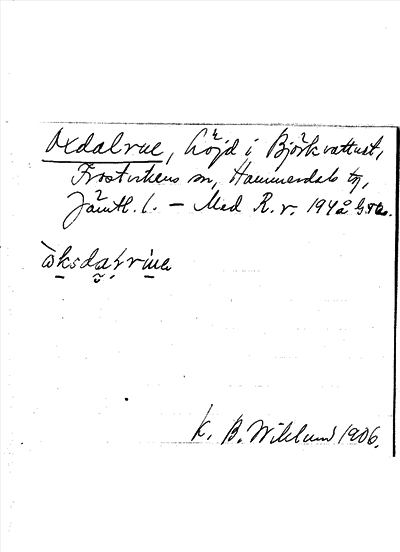 Oxdalrue, höjd i Björkvattnet,
Frostvikens sn, Hammerdals tg,
Jämtl. l. – Med R. v. 194 å
òksdaḷrùa
K. B. Wiklund 1906.